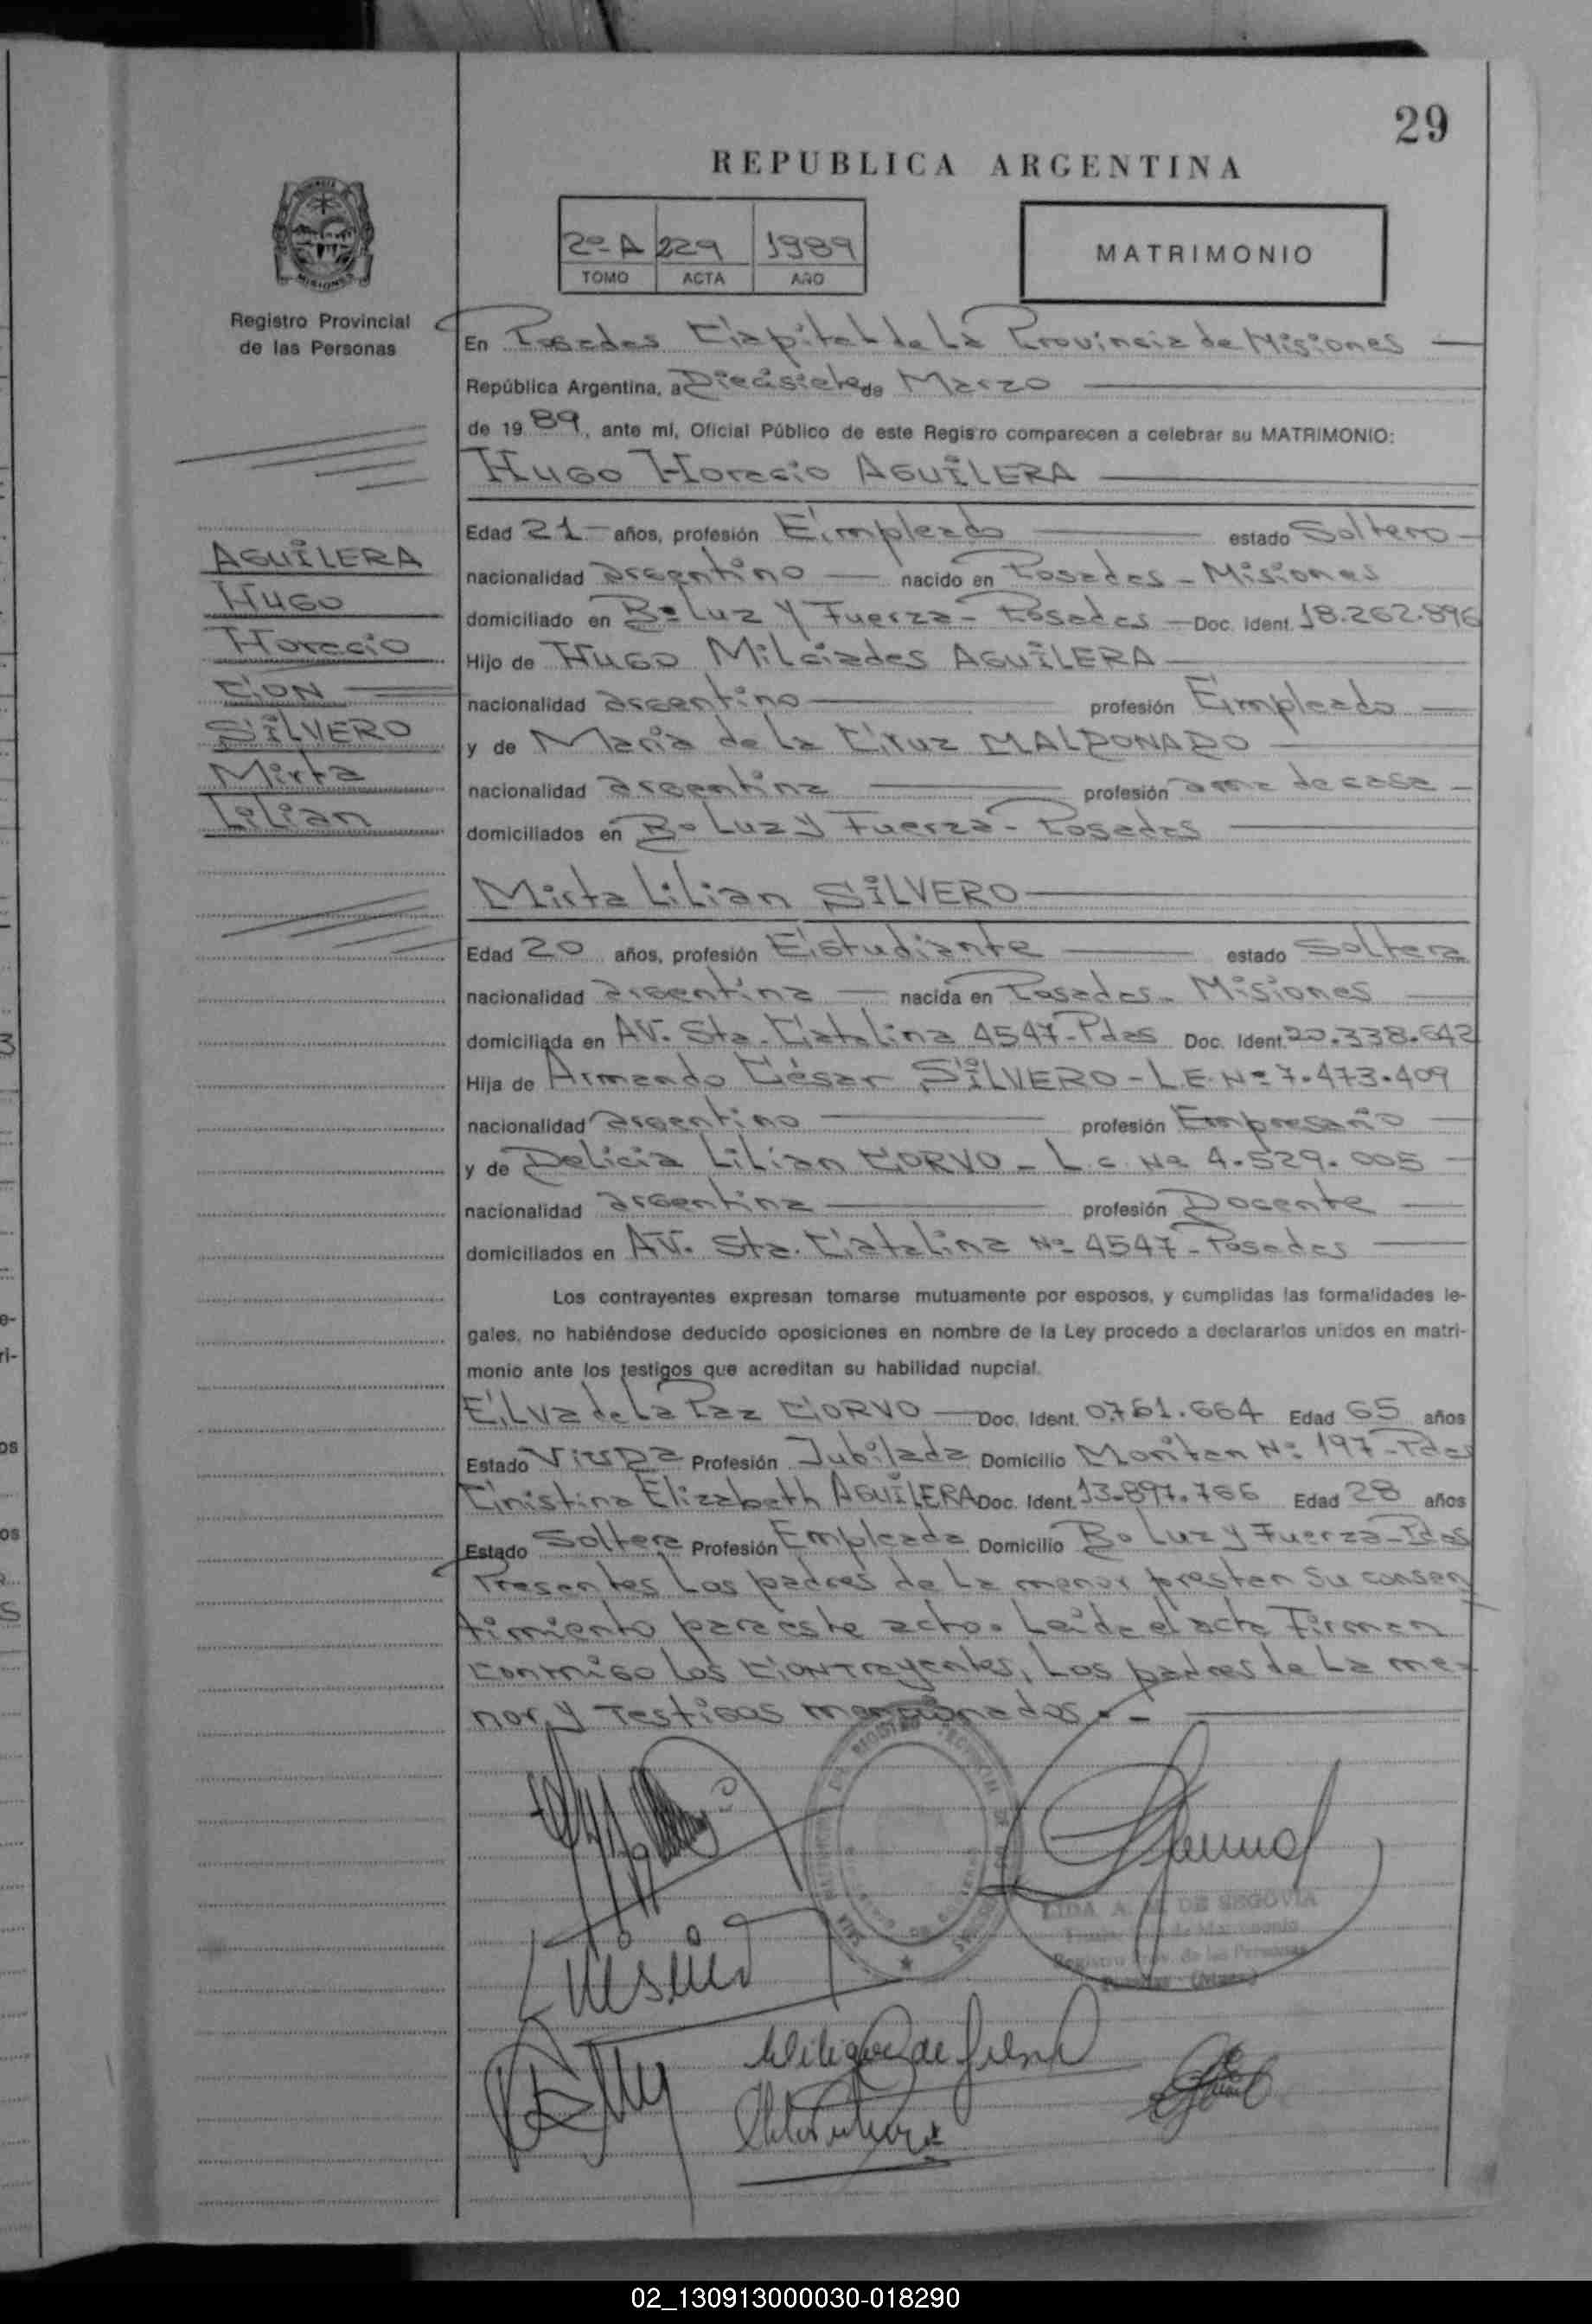 29
REPUBLICA ARGENTINA
2º A 229 1989
TOMO ACTA AÑO
MATRIMONIO
Registro Provincial
de las Personas
AGUILERA
HUGO
Horacio
CON
SILVERO
Mirta
Lilian
En Posadas Capital de La Provincia de Misiones
República Argentina, a Diecisiete de Marzo
de 1989, ante mí, Oficial Público de este Registro comparecen a celebrar su MATRIMONIO:
HUGO Horacio AGUILERA
Edad 21 años, profesión Empleado estado Soltero
nacionalidad argentino nacido en Posadas - Misiones
domiciliado en Bº Luz y Fuerza - Posadas - Doc. Ident. 18.262.896
Hijo de HUGO Milciades AGUILERA
nacionalidad argentino profesión Empleado
y de Maria de la Cruz MALDONADO
nacionalidad argentina profesión ama de casa
domiciliados en Bº Luz y Fuerza - Posadas
Mirta Lilian SILVERO
Edad 20 años, profesión Estudiante estado Soltera
nacionalidad argentina nacida en Posadas - Misiones
domiciliada en AV. Sta. Catalina 4547 - Pdas Doc. Ident. 20.338.642
Hija de Armando César SILVERO - L.E. Nº 7.473.409
nacionalidad argentino profesión Empresario
y de Delicia Lilian CORVO - L.C. Nº 4.529.005
nacionalidad argentina profesión Docente
domiciliados en AV. Sta. Catalina Nº 4547 - Posadas
Los contrayentes expresan tomarse mutuamente por esposos, y cumplidas las formalidades le-
gales, no habiéndose deducido oposiciones en nombre de la Ley procedo a declararlos unidos en matri-
monio ante los testigos que acreditan su habilidad nupcial.
Elva de La Paz CORVO Doc. Ident. 0.761.664 Edad 65 años
Estado Viuda Profesión Jubilada Domicilio Nº 197 - Pdas
Cristina Elizabeth AGUILERA Doc. Ident. 13.897.766 Edad 28 años
Estado Soltera Profesión Empleada Domicilio Bº Luz y Fuerza - Pdas
Presentes Los padres de La menor prestan su consen
timiento para este acto. Leida el acta Firman
conmigo Los Contrayentes, Los padres de La me-
nor y Testigos mencionados.-
LIDA A. M. DE SEGOVIA
Registro Prov. de las Personas
02_130913000030-018290